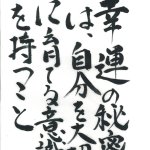 幸運の秘密
は、自分を大切
に育てる意識
を持つこと